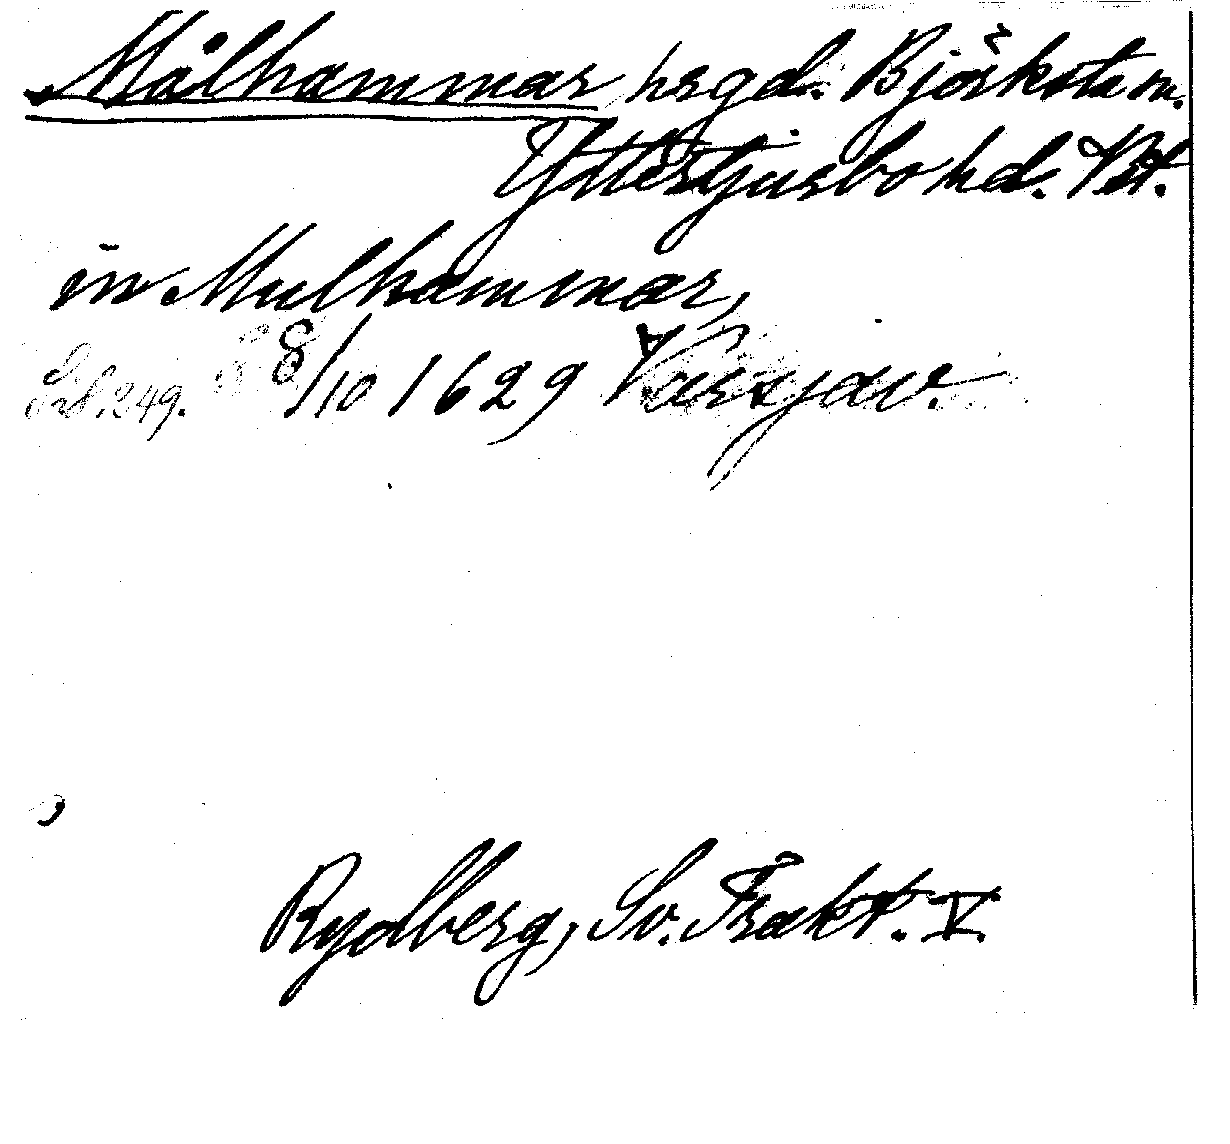 Målhammar hsgd. Björksta sn.
Yttertjurbo hd. Vstm.
in Mulhammar,
Sid. 249. 8/10 1629 Varsjaw.
Rydberg, Sv. Trakt. V.